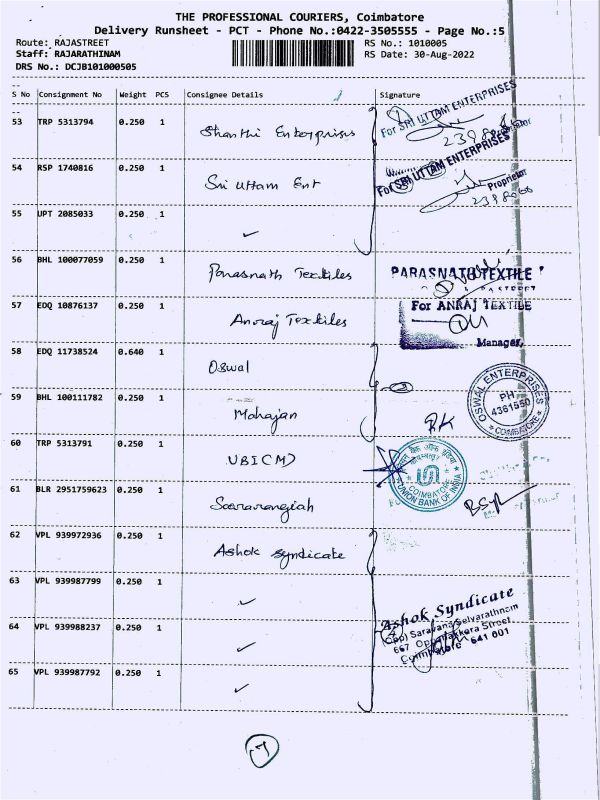 THE PROFESSIONAL COURIERS, Coimbatore
Delivery Runsheet - PCT - Phone No.:0422-3505555 - Page No.:5
Route: RAJASTREET RS No.: 1010005
Staff: RAJARATHINAM RS Date: 30-Aug-2022
DRS No.: DCJB101000505
S No Consignment No Weight PCS Consignee Details Signature
For SRI UTTAM ENTERPRISES
53 TRP 5313794 0.250 1 Shanthi Enterprises
For SRI UTTAM ENTERPRISES
54 RSP 1740816 0.250 1 Sri Uttam Ent
Proprietor
55 UPT 2085033 0.250 1 ✓
56 BHL 100077059 0.250 1 Parasnath Textiles PARASNATH TEXTILE
57 EDQ 10876137 0.250 1 Anraj Textiles For ANRAJ TEXTILE
Manager
58 EDQ 11738524 0.640 1 Oswal
OSWAL ENTERPRISES
PH
4361550
COIMBATORE
59 BHL 100111782 0.250 1 Mahajan
60 TRP 5313791 0.250 1 UBI(M)
UNION BANK OF INDIA
COIMBATORE
61 BLR 2951759623 0.250 1
62 VPL 939972936 0.250 1 Ashok Syndicate
63 VPL 939987799 0.250 1 ✓
Ashok Syndicate
64 VPL 939988237 0.250 1 ✓
(Opp) Saravana Selvarathnam
667 Oppanakkara Street,
Coimbatore 641 001
65 VPL 939987792 0.250 1 ✓
7